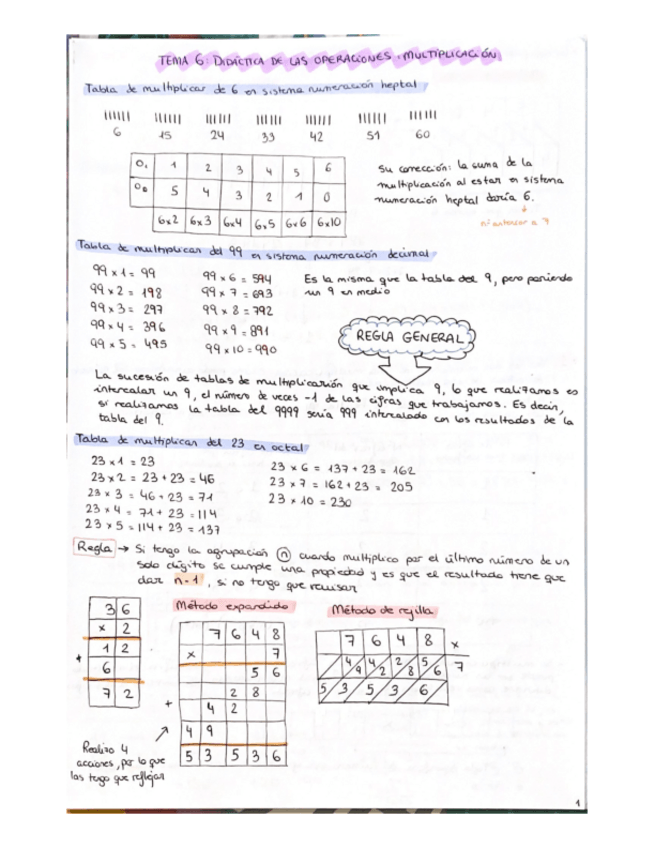 TEMA 6: DIDÁCTICA DE LAS OPERACIONES. MULTIPLICACIÓN
Tabla de multiplicar de 6 en sistema numeración heptal
6 15 24 33 42 51 60
O. 1 2 3 4 5 6
5 4 3 2 1 0
6x2 6x3 6x4 6x5 6x6 6x10
Su corrección: la suma de la
multiplicación al estar en sistema
numeración heptal daría 6.
nº anterior a 7
Tabla de multiplicar del 99 en sistema numeración decimal
99 x 1 = 99
99 x 2 = 198
99 x 3 = 297
99 x 4 = 396
99 x 5 = 495
99 x 6 = 594
99 x 7 = 693
99 x 8 = 792
99 x 9 = 891
99 x 10 = 990
Es la misma que la tabla del 9, pero poniendo
un 9 en medio
REGLA GENERAL
La sucesión de tablas de multiplicación que implica 9, lo que realizamos es
intercalar un 9, el número de veces -1 de las cifras que trabajamos. Es decir,
si realizamos la tabla del 9999 sería 999 intercalado con los resultados de la
tabla del 9.
Tabla de multiplicar del 23 en octal
23 x 1 = 23
23 x 2 = 23 + 23 = 46
23 x 3 = 46 + 23 = 71
23 x 4 = 71 + 23 = 114
23 x 5 = 114 + 23 = 137
23 x 6 = 137 + 23 = 162
23 x 7 = 162 + 23 = 205
23 x 10 = 230
Regla → Si tengo la agrupación n cuando multiplico por el último número de un
solo dígito se cumple una propiedad y es que el resultado tiene que
dar n-1, si no tengo que revisar
3 6
x 2
1 2
+ 6
7 2
Realizo 4
acciones, por lo que
las tengo que reflejar
Método expandido
7 6 4 8
x 7
5 6
2 8
+ 4 2
4 9
5 3 5 3 6
Método de rejilla
7 6 4 8 x
4 9 4 2 2 8 5 6 7
5 3 5 3 6
1